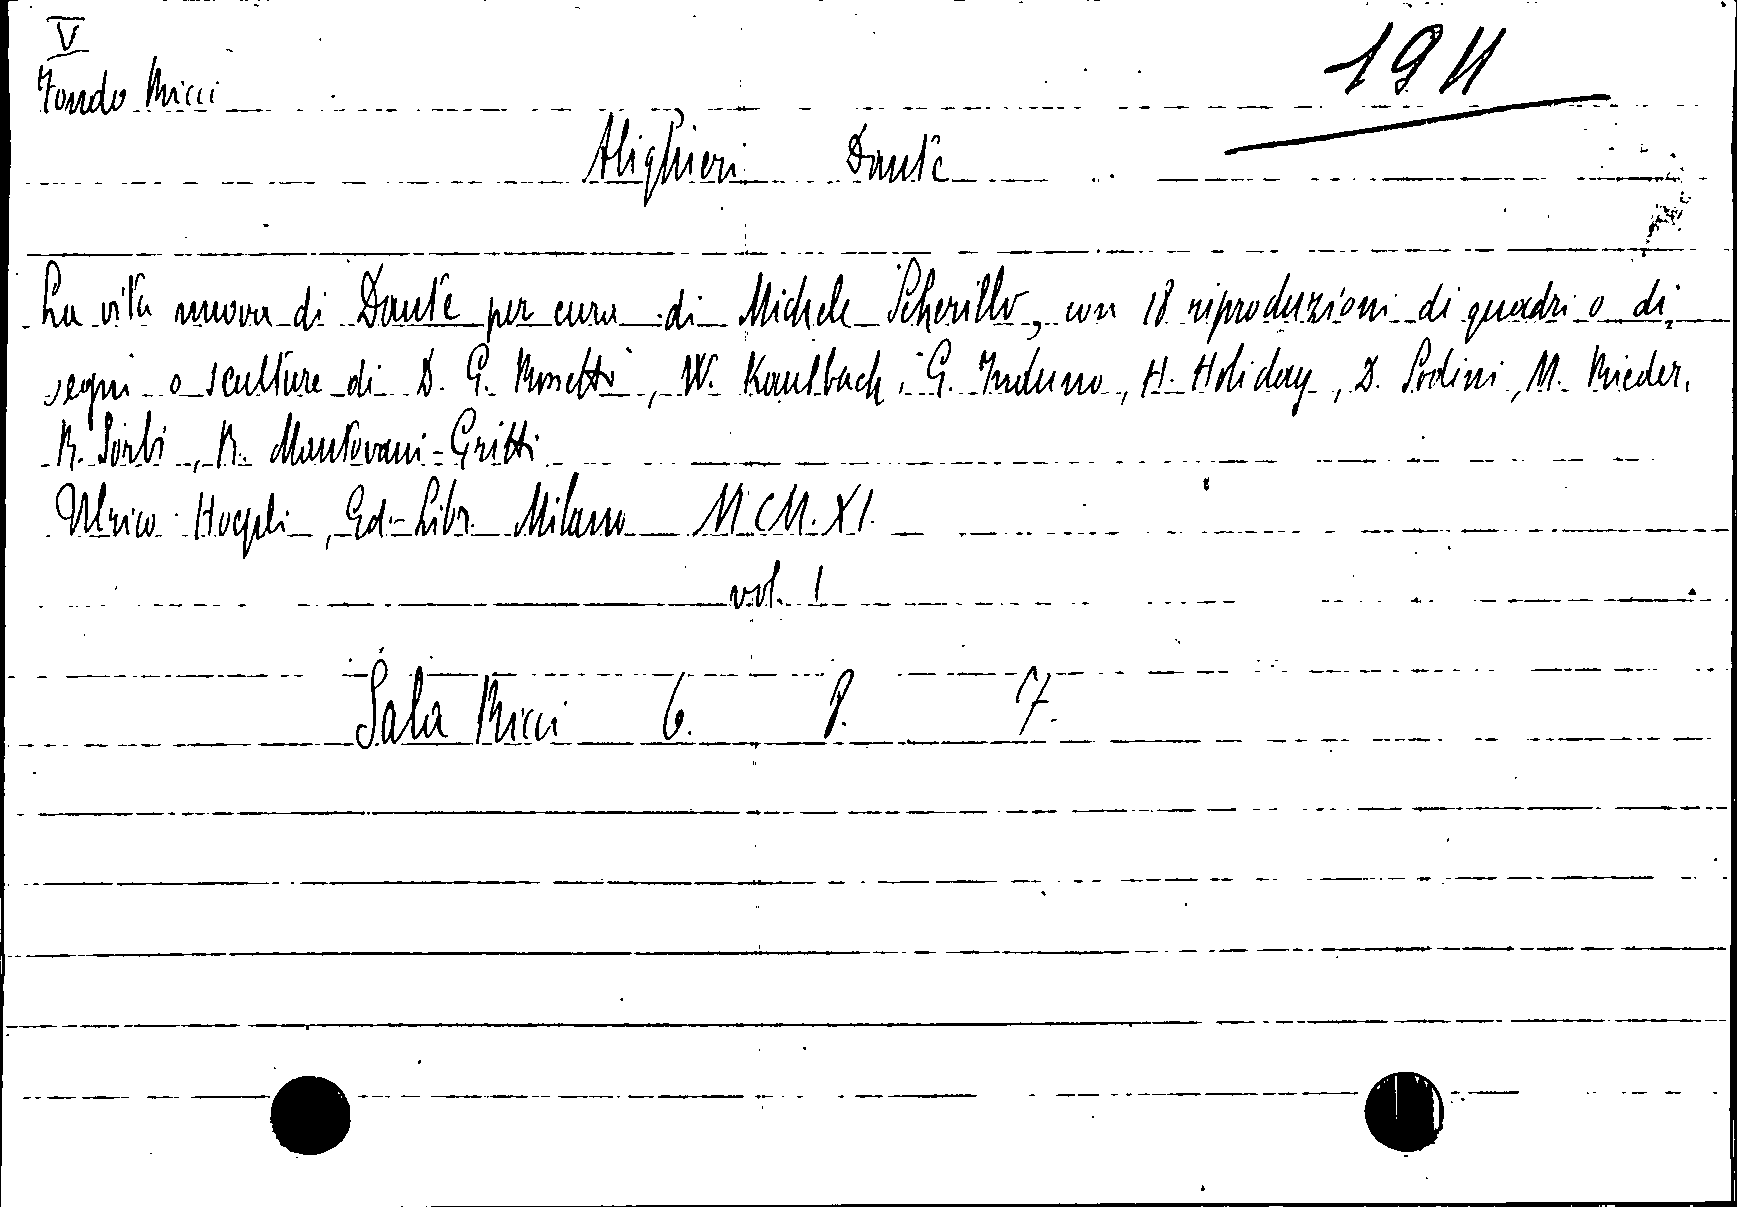 V
Fondo Ricci
1911
Alighieri Dante
La vita nuova di Dante per cura di Michele Scherillo, con 18 riproduzioni di quadri o di,
segni o sculture di D. G. Rossetti, W. Kaulbach, G. Induno, H. Holiday, D. Sodini, M. Rieder,
R. Sorbi, R. Mantovani-Gritti
Ulrico Hoepli, Ed-Libr. Milano M.CM.XI.
vol. 1
Sala Ricci 6. 8. 7.